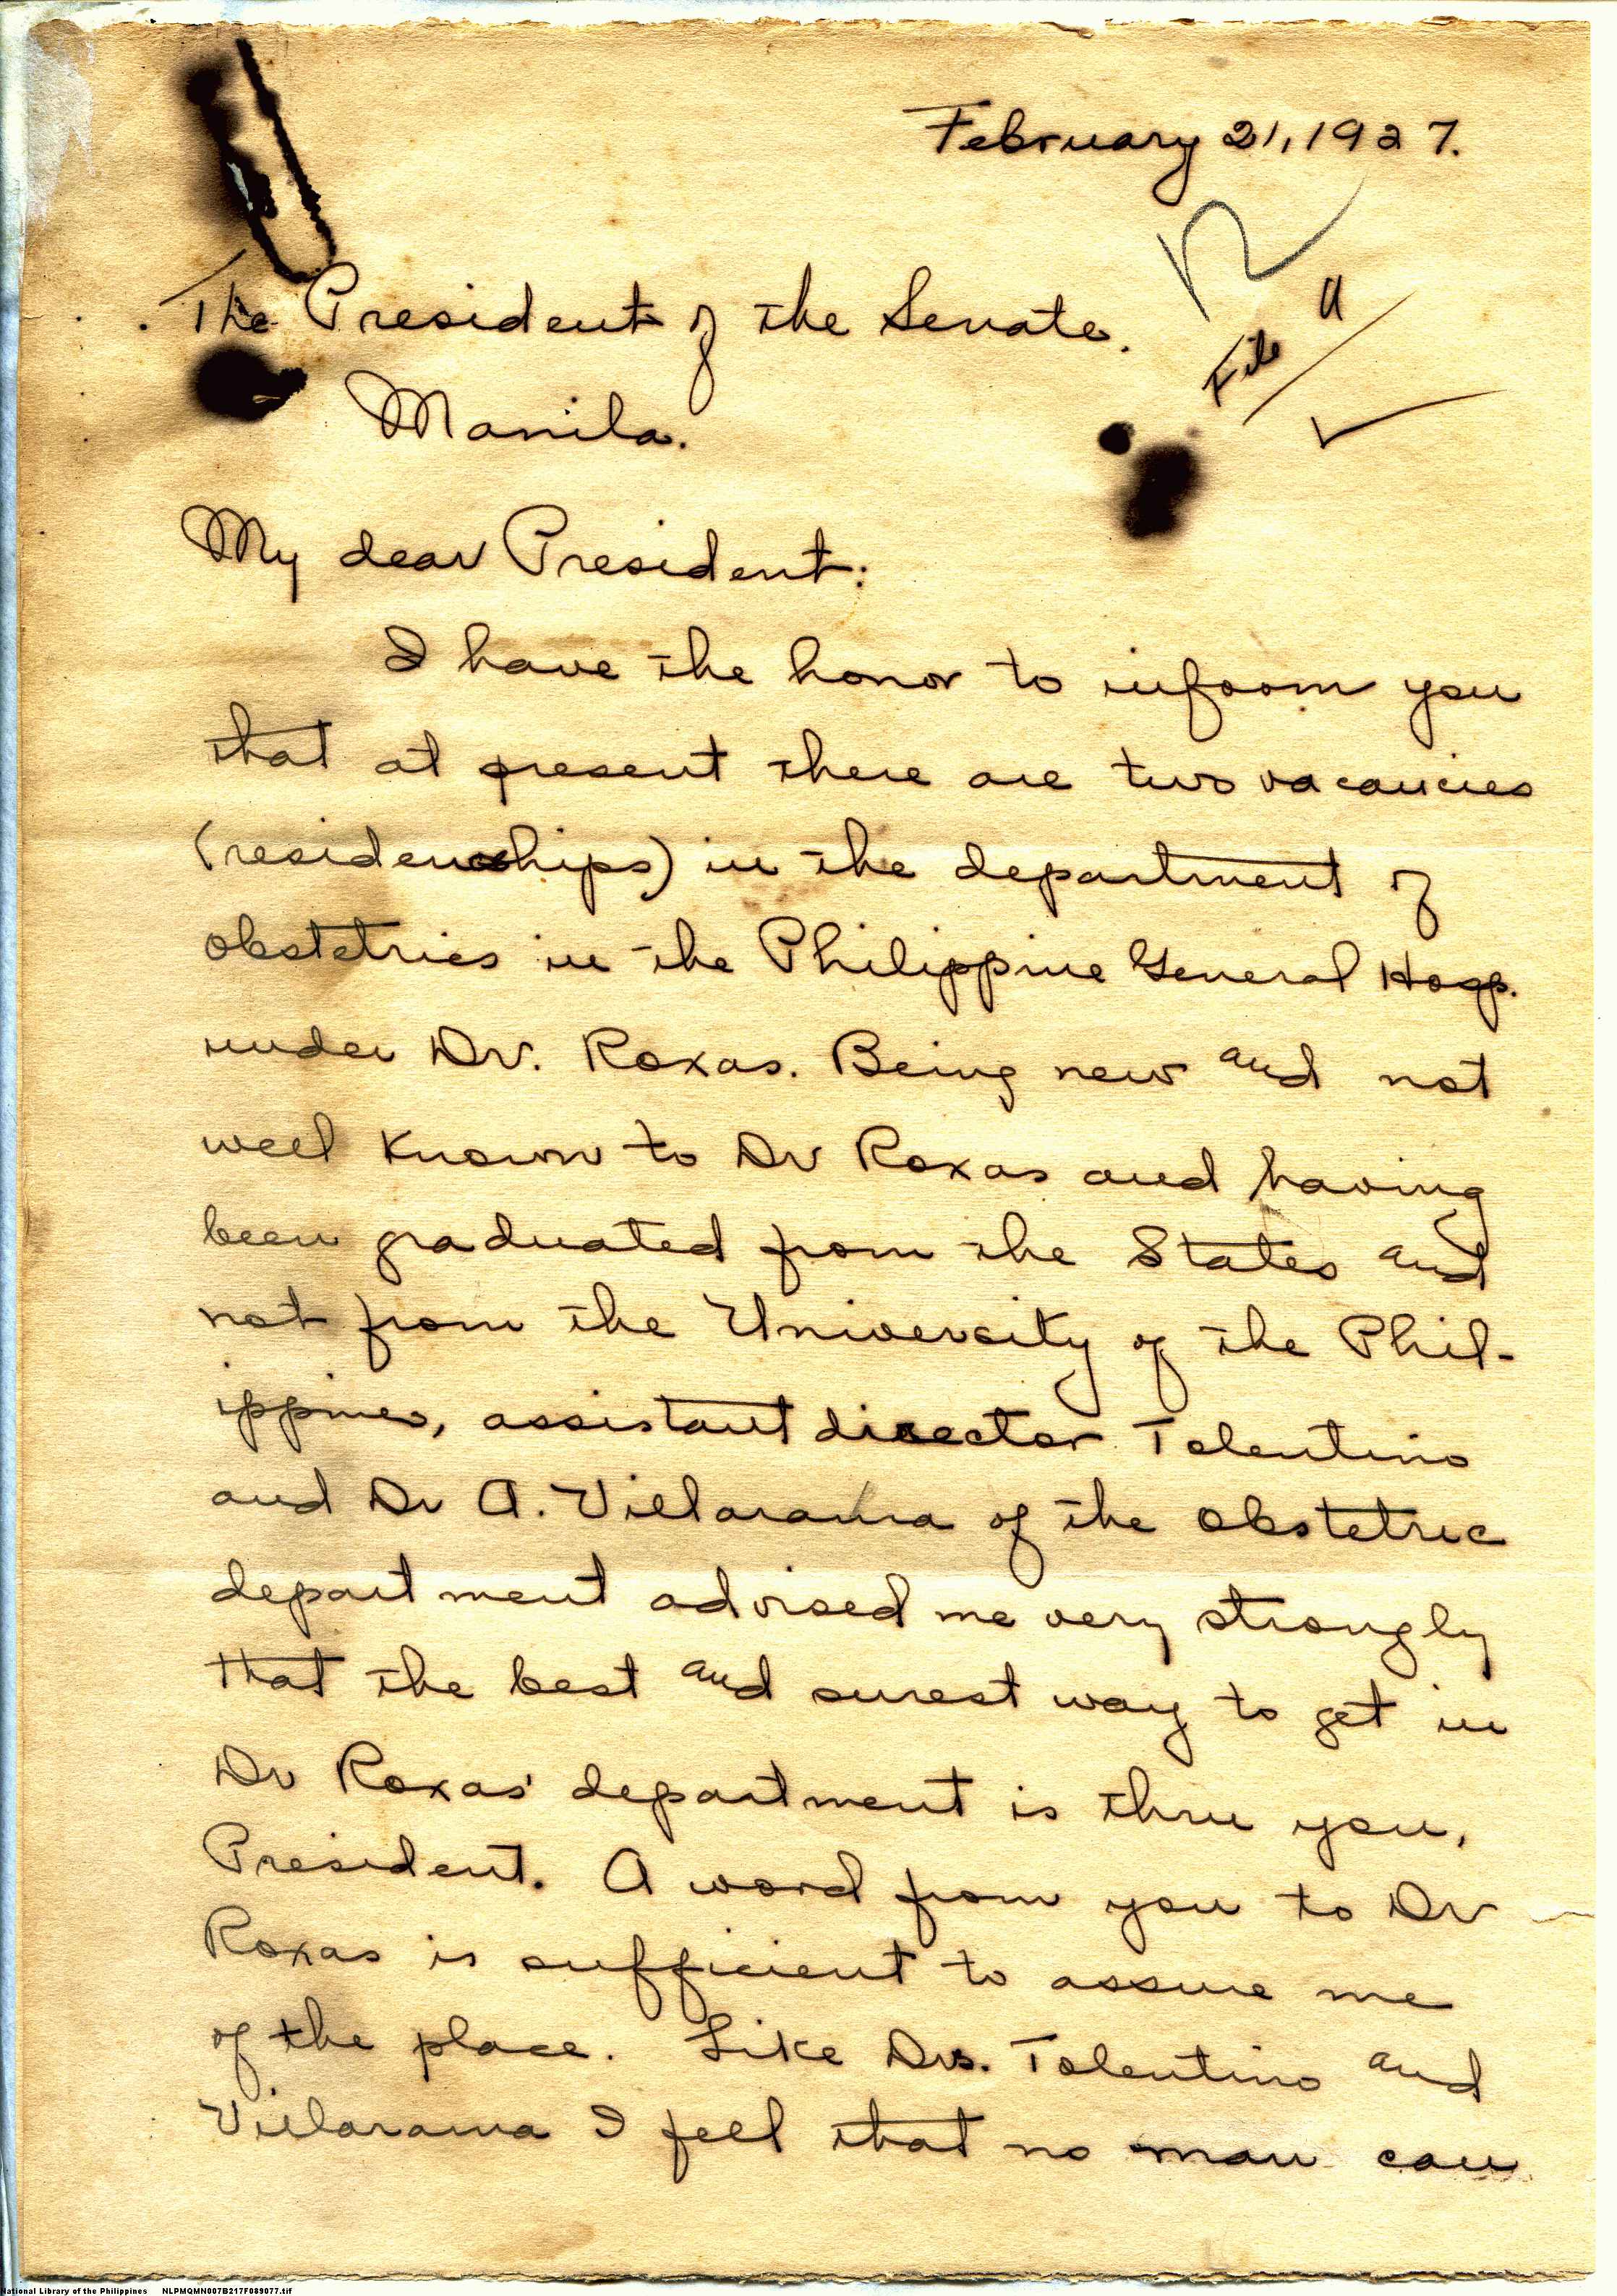 February 21, 1927.
File
The President of the Senate.
Manila.
My dear President:
I have the honor to inform you
that at present there are two vacancies
(residenships) in the department of
obstetrics in the Philippine General Hosp.
under Dr. Roxas. Being new and not
well known to Dr Roxas and having
been graduated from the States and
not from the University of the Phil-
ippines, assistant director Tolentino
and Dr A. Villarama of the obstetric
department advised me very strongly
that the best and surest way to get in
Dr Roxas' department is thru you,
President. A word from you to Dr
Roxas is sufficient to assure me
of the place. Like Drs. Tolentino and
Villarama I feel that no man can
National Library of the Philippines NLPMQMN007B217F089077.tif